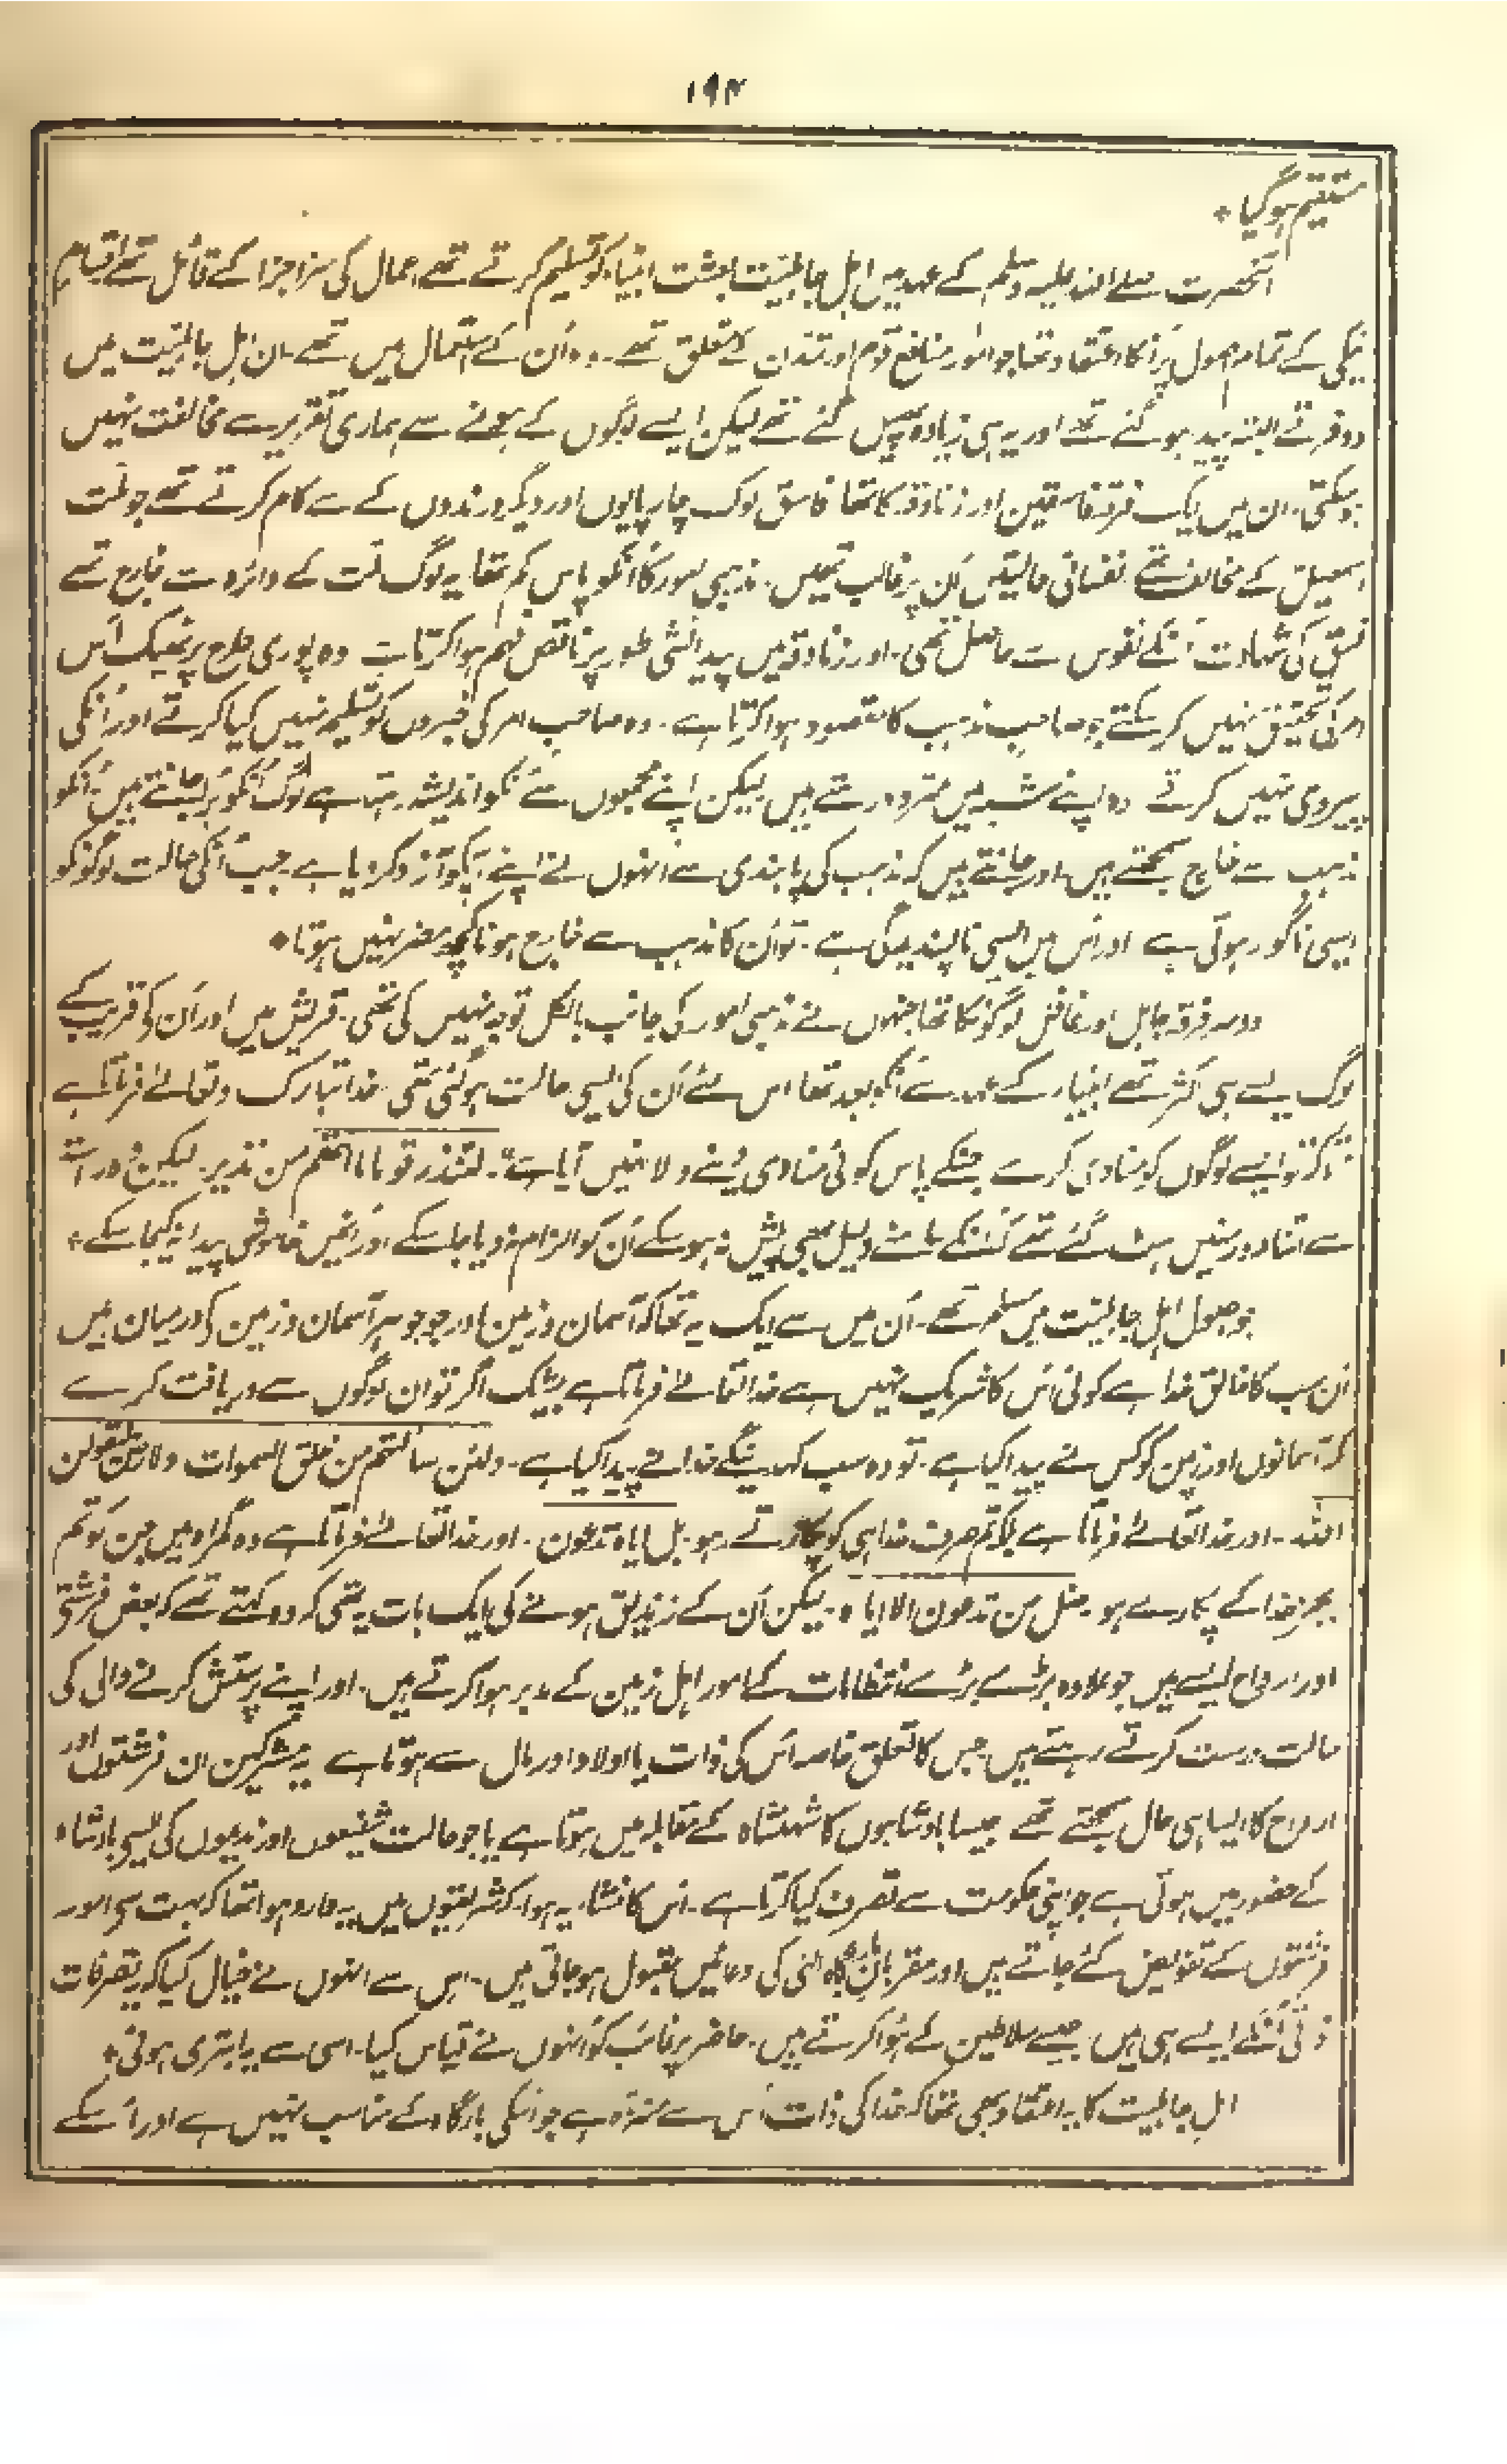 ۱۹۴
مستقیم ہوگیا *
آنحضرت صلے اللہ علیہ وسلم کے عہد میں اہل جاہلیت بعثت انبیاء کو تسلیم کرتے تھے اعمال کی سزا جزا کے قائل تھے اقسام
نیکی کے تمام اصول پر انکا اعتقاد تھا جو امور منافع قوم اور تمدن کے متعلق تھے۔ وہ اُن کے استعمال میں تھے۔ ان اہل جاہلیت میں
دو فرقے البتہ پیدا ہوگئے تھے اور یہ ہی زیادہ پھیل گئے تھے لیکن ایسے لوگوں کے ہونے سے ہماری تقریر سے مخالفت نہیں
ہوسکتی۔ ان میں ایک فرقہ فاسقین اور زنادقہ کا تھا فاسق لوگ چارپایوں اور دیگر درندوں کے سے کام کرتے تھے جو ملت
اسمعیل کے مخالف تھے نفسانی حالتیں اُن پر غالب تھیں۔ مذہبی امور کا انکو پاس کم تھا یہ لوگ ملت کے دائرہ سے خارج تھے
فسق کی شہادت اُنکے نفوس سے حاصل تھی۔ اور زنادقہ میں پیدائشی طور پر ناقص فہم ہوا کرتا ہے وہ پوری طرح پر ٹھیک اُس
امر کی تحقیق نہیں کرسکتے جو صاحب مذہب کا مقصود ہوا کرتا ہے۔ وہ صاحب امر کی خبروں کو تسلیم نہیں کیا کرتے اور اُنکی
پیروی نہیں کرتے وہ اپنے شبہ میں متردد رہتے ہیں لیکن اپنے مجمعوں سے اُنکو اندیشہ رہتا ہے لوگ اُنکو بُرا جانتے ہیں اُنکو
مذہب سے خارج سمجھتے ہیں اور جانتے ہیں کہ مذہب کی پابندی سے انہوں نے اپنے آپکو آزاد کردیا ہے۔ جب اُنکی حالت لوگونکو
ایسی ناگوار ہوتی ہے اور اُس میں ایسی ناپسندیدگی ہے۔ تو اُن کا مذہب سے خارج ہونا کچھ مضر نہیں ہوتا *
دوسرا فرقہ جاہل اور غافل لوگونکا تھا جنہوں نے مذہبی امور کی جانب بالکل توجہ نہیں کی تھی۔ قریش میں اور اُن کی قریب کے
لوگ ایسے ہی اکثر تھے انبیاء کے عہد سے اُنکو بعد تھا اس لئے اُن کی ایسی حالت ہوگئی تھی۔ خدا تبارک وتعالےٰ فرماتا ہے
تاکہ تو ایسے لوگوں کو منادی کرے جنکے پاس کوئی منادی دینے والا نہیں آیا ہے۔ لتنذر قوما ما اتٰهم من نذیر۔ لیکن وہ راستہ
سے اتنا دور نہیں ہٹ گئے تھے کہ اُنکے سامنے دلیل بھی پیش نہ ہوسکے اُن کو الزام نہ دیا جاسکے اور اُنمیں خاموشی پیدا نہ کیجاسکے *
جو اصول اہل جاہلیت میں مسلم تھے۔ اُن میں سے ایک یہ تھا کہ آسمان وزمین اور جو جوہر آسمان وزمین کی درمیان میں
اُن سب کا خالق خدا ہے کوئی اُس کا شریک نہیں ہے خدا تعالےٰ فرماتا ہے بیشک اگر تو ان لوگوں سے دریافت کرے
کہ آسمانوں اور زمین کو کس نے پیدا کیا ہے۔ تو وہ سب کہدینگے خدا نے پیدا کیا ہے۔ ولئن سألتهم من خلق السموات والارض لیقولن
اللہ۔ اور خدا تعالےٰ فرماتا ہے بلکہ تم صرف خدا ہی کو پکارتے ہو۔ بل ایاہ تدعون۔ اور خدا تعالےٰ فرماتا ہے وہ گمراہ ہیں جن کو تم
بجز خدا کے پکارے ہو۔ ضل من تدعون الا ایاہ۔ لیکن اُن کے زندیق ہونے کی ایک بات یہ تھی کہ وہ کہتے تھے کہ بعض فرشتے
اور ارواح ایسے ہیں جو علاوہ بڑے بڑے انتظامات کے امور اہل زمین کے مدبر ہوا کرتے ہیں۔ اور اپنے پرستش کرنے والی کی
حالت درست کرتے رہتے ہیں جس کا تعلق خاصہ اُس کی ذات یا اولاد اور مال سے ہوتا ہے یہ مشرکین ان فرشتوں اور
ارواح کا ایسا ہی حال سمجھتے تھے جیسا بادشاہوں کا شہنشاہ کے مقابلہ میں ہوتا ہے یا جو حالت شفیعوں اور ندیموں کی ایسی بادشاہ
کے حضور میں ہوتی ہے جو اپنی حکومت سے تصرف کیا کرتا ہے۔ اس کا منشاء یہ ہوا کہ شریعتوں میں یہ وارد ہوا تھا کہ بہت سی امور
فرشتوں کے تفویض کئے جاتے ہیں اور مقربان بارگاہ الٰہی کی دعائیں مقبول ہوجاتی ہیں۔ اس سے انہوں نے خیال کیا کہ یہ تصرفات
ذاتی اُنکے ایسے ہی ہیں جیسے سلاطین کے ہوا کرتے ہیں۔ حاضر پر غائب کو اُنہوں نے قیاس کیا۔ اسی سے یہ ابتری ہوئی *
اہل جاہلیت کا یہ اعتقاد بھی تھا کہ خدا کی ذات اُس سے منزہ ہے جو اُسکی بارگاہ کے مناسب نہیں ہے اور اُسکے